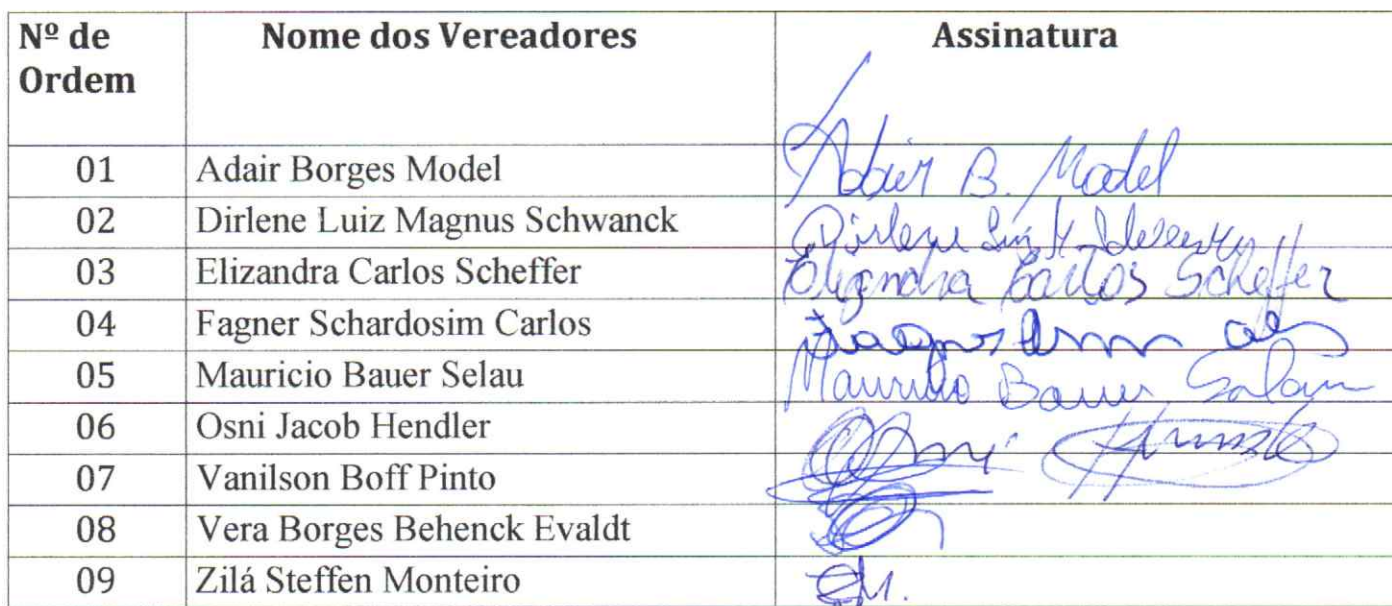 Nº de Ordem Nome dos Vereadores Assinatura
01 Adair Borges Model Adair B. Model
02 Dirlene Luiz Magnus Schwanck Dirlene Luiz M.
03 Elizandra Carlos Scheffer Elizandra Carlos Scheffer
04 Fagner Schardosim Carlos
05 Mauricio Bauer Selau Mauricio Bauer Selau
06 Osni Jacob Hendler Osni
07 Vanilson Boff Pinto
08 Vera Borges Behenck Evaldt
09 Zilá Steffen Monteiro